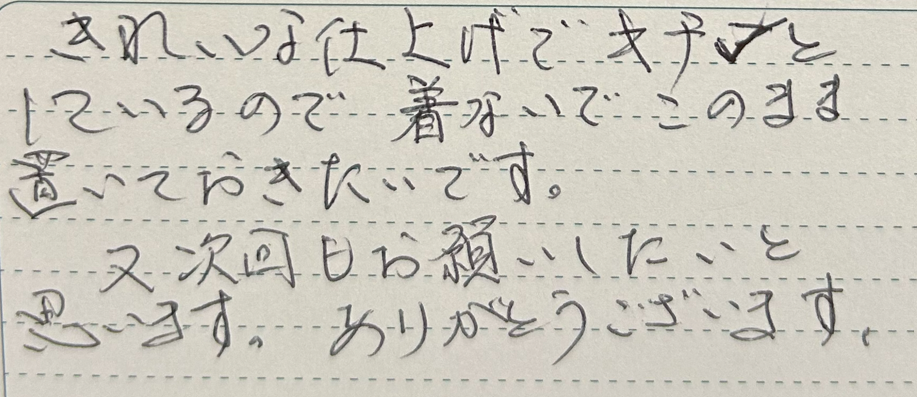 きれいな仕上げでキチッと
しているので着ないでこのまま
置いておきたいです。
又次回もお願いしたいと
思います。ありがとうございます。